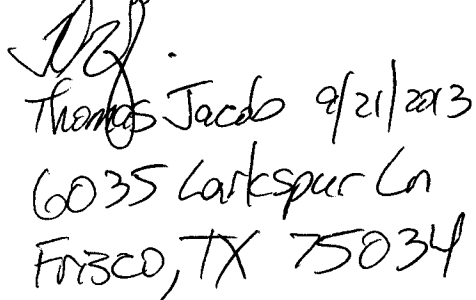 Thomas Jacob 9/21/2013
6035 Larkspur Ln
Frisco, TX 75034